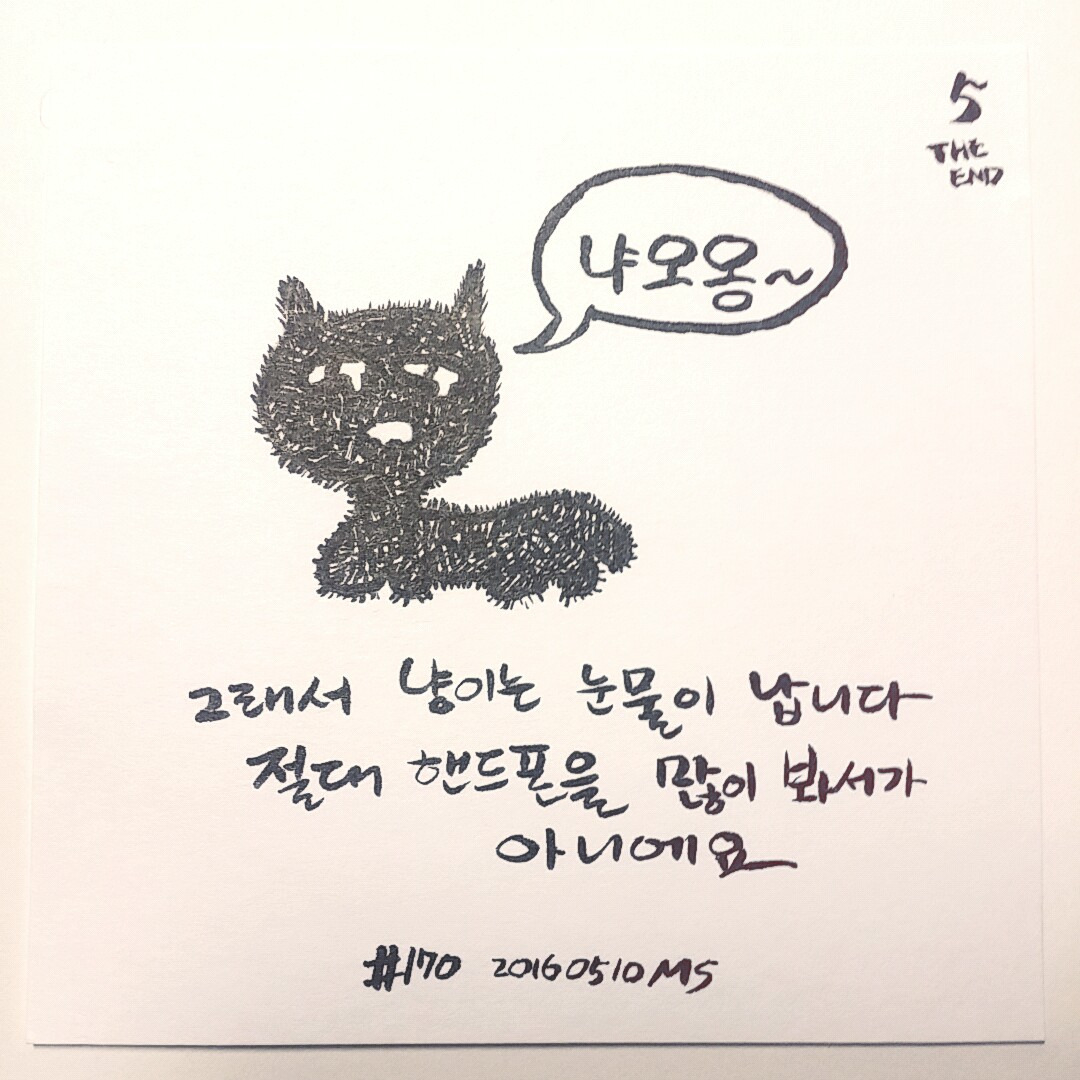 5
THE
END
냐오옹~
그래서 냥이는 눈물이 납니다
절대 핸드폰을 많이 봐서가
아니에요
#170 20160510 MS